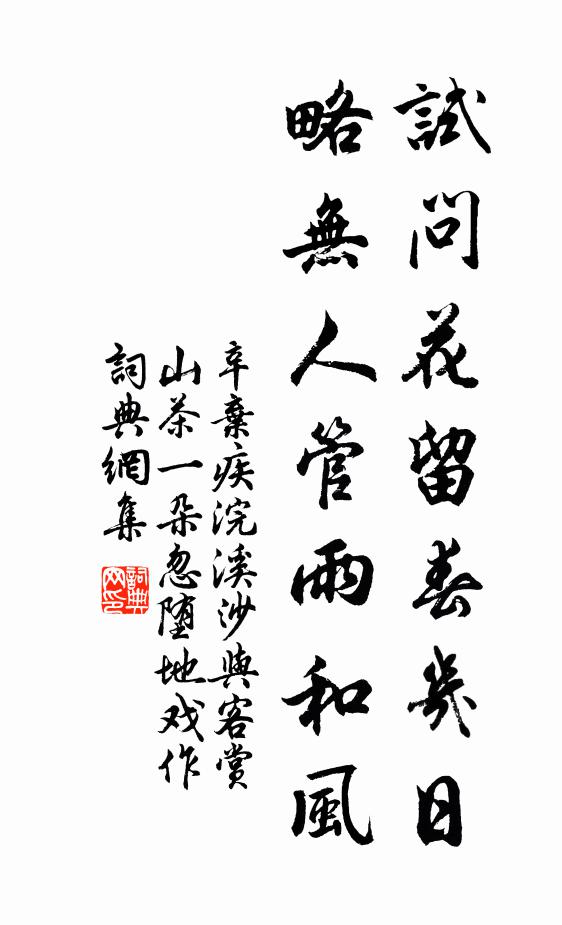 試問花留春幾日
略無人管雨和風
辛棄疾浣溪沙與客賞
山茶一朵忽墮地戏作
詞典網集
詞典網印